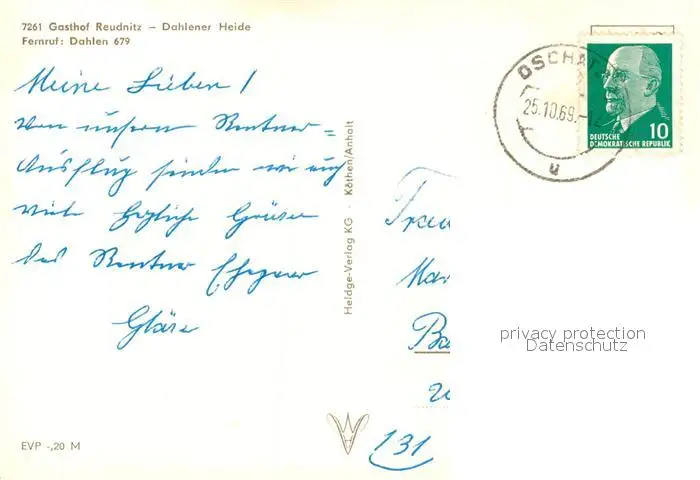 7261 Gasthof Reudnitz – Dahlener Heide
Fernruf: Dahlen 679
Meine Lieben!
Von unserm Rentner=
Ausflug senden wir euch
viele herzliche Grüsse
das Rentner Ehepaar
Gläse
EVP -,20 M
Heldge-Verlag KG · Köthen/Anhalt
OSCHATZ
25.10.69.-12
u
DEUTSCHE
DEMOKRATISCHE REPUBLIK
10
Frau
Mar
Ba
131
privacy protection
Datenschutz